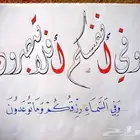 وفي أنفسكم أفلا تبصرون
وَفِي السَّمَاءِ رِزْقُكُمْ وَمَا تُوعَدُونَ